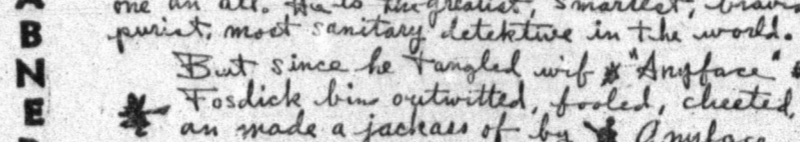 ABNER
one an all. He is the greatist, smartest, bravis
purist, most sanitary detektuve in the world.
But since he tangled wif "Anyface"
Fosdick bin outwitted, fooled, cheeted,
an made a jackass of by Anyface